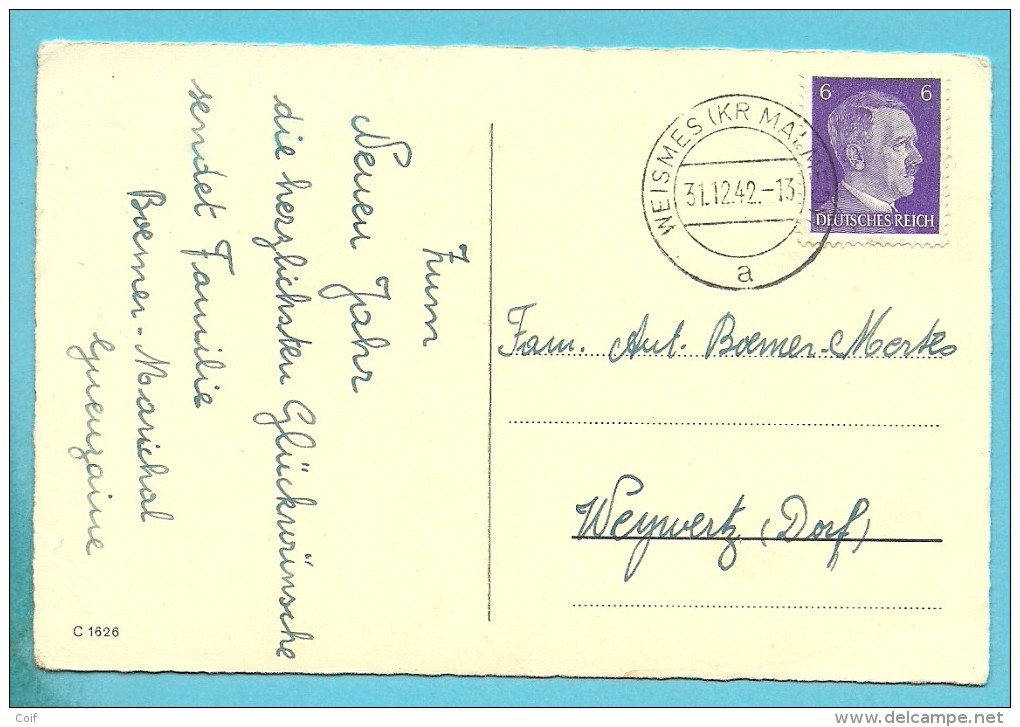 Zum
Neuen Jahr
die herzlichsten Glückwünsche
sendet Familie
Boemer-Marichal
Gueuzaine
C 1626
WEISMES (KR MALMEDY)
31.12.42.-13
a
6 6
DEUTSCHES REICH
Fam. Ant. Boemer-Mertes
Weywertz (Dorf)
Coif
delcampe.net